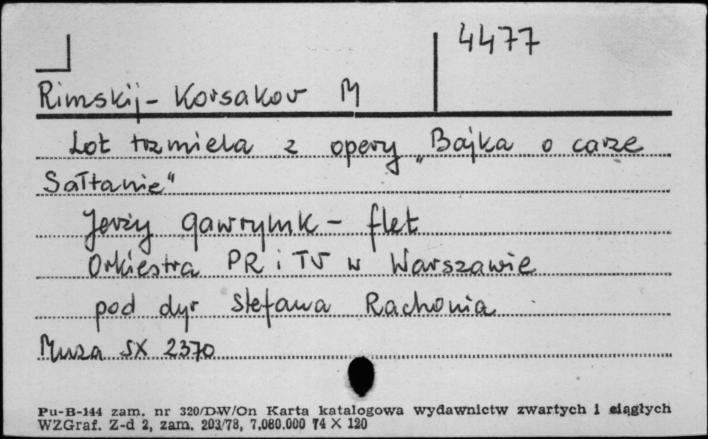 4477
Rimskij-Korsakov M
Lot trzmiela z opery „Bajka o carze
Sałtanie"
Jerzy Gawryluk - flet
Orkiestra PR i TV w Warszawie
pod dyr Stefana Rachonia
Muza SX 2370
Pu-B-144 zam. nr 320/D-W/On Karta katalogowa wydawnictw zwartych i ciągłych
WZGraf. Z-d 2, zam. 203/78, 7,080.000 74 X 120